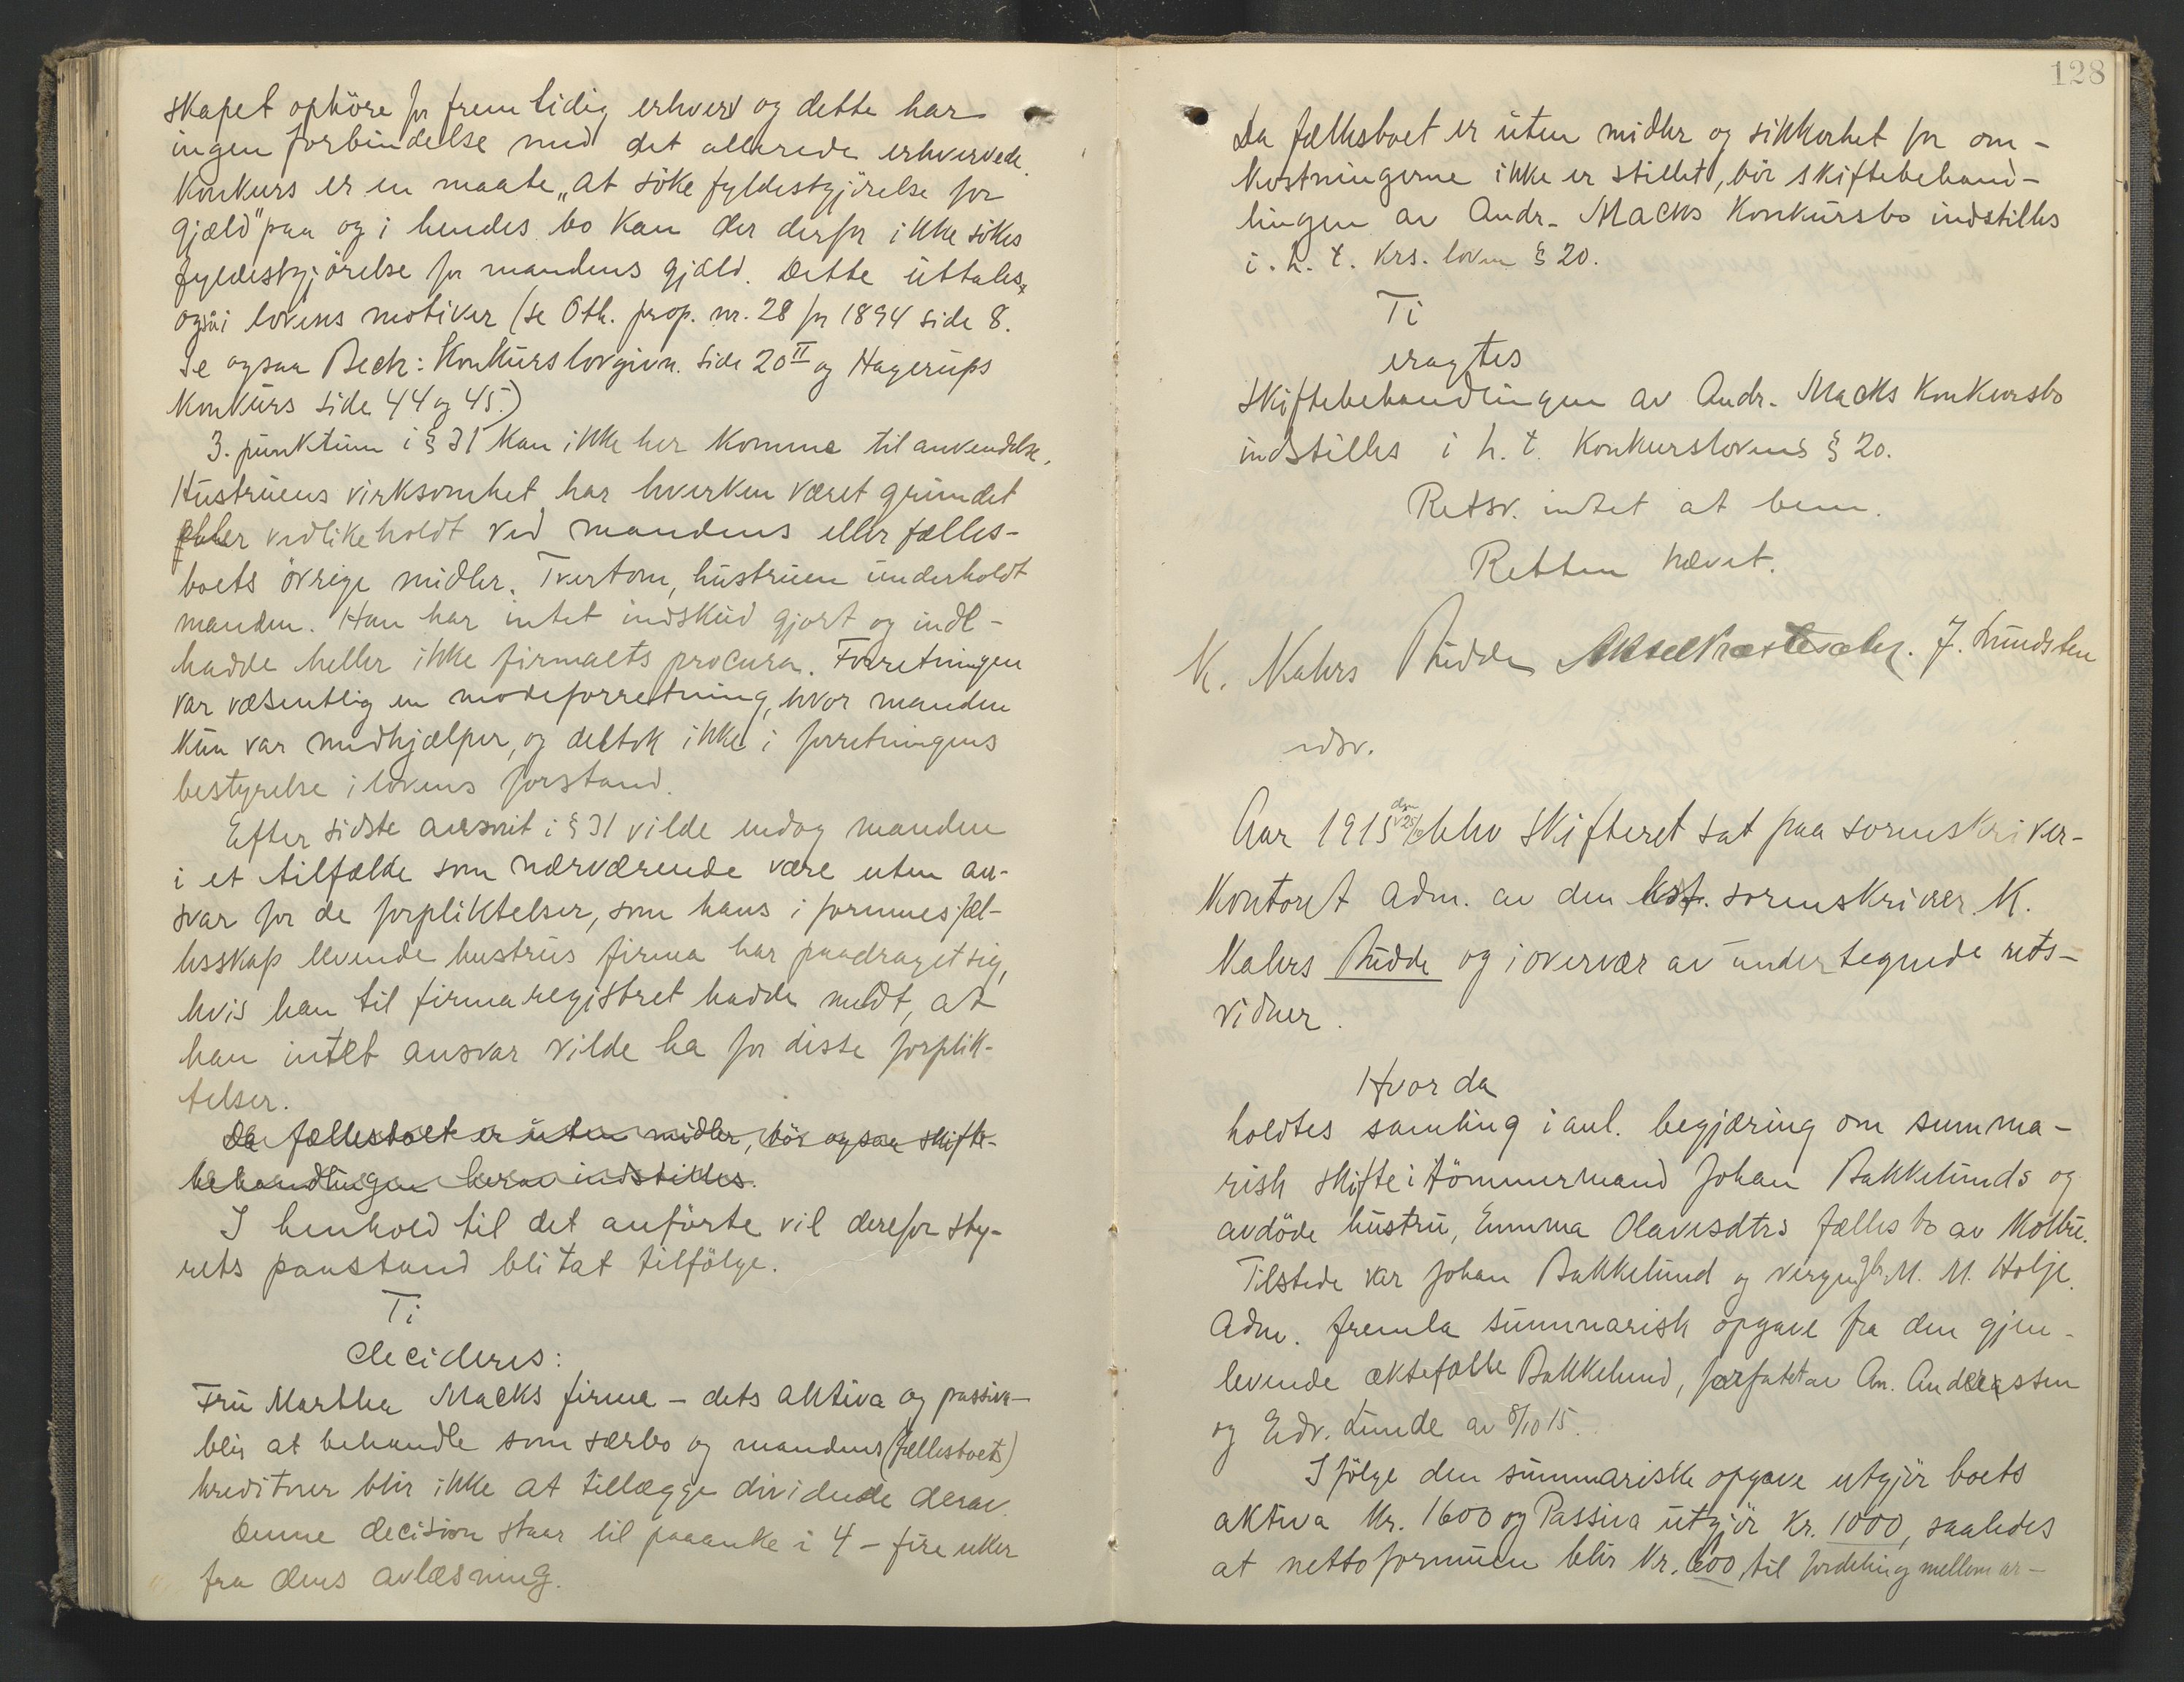 skapet ophöre for fremtidig erhverv og dette har
ingen forbindelse med det allerede erhvervede.
Konkurs er en maate „at söke fyldestgjörelse for
gjæld" paa og i hendes bo kan der derfor ikke sökes
fyldestgjörelse for mandens gjæld. Dette uttales
også i lovens motiver (se Oth. prop. nr. 28 for 1894 side 8.
Se ogsaa Beck: Konkurslovgivn. side 20 II og Hagerups
Konkurs side 44 og 45.)
3. punktum i § 31 kan ikke her komme til anvendelse.
Hustruens virksomhet har hverken været grundet
eller vedlikeholdt ved mandens eller fælles-
boets övrige midler. Tvertom, hustruen underholdt
manden. Han har intet indskud gjort og indl-
hadde heller ikke firmaets procura. Forretningen
var væsentlig en modeforretning, hvor manden
kun var medhjælper, og deltok ikke i forretningens
bestyrelse i lovens forstand.
Efter sidste avsnit i § 31 vilde endog manden
i et tilfælde som nærværende være uten an-
svar for de forpliktelser, som hans i formuesfæl-
lesskap levende hustrus firma har paadraget sig,
hvis han til firmaregistret hadde meldt, at
han intet ansvar vilde ha for disse forplik-
telser.
Da fællesboet er uten midler, bör ogsaa skifte-
behandlingen herav indstilles.
I henhold til det anförte vil derefor sty-
rets paastand bli tat tilfölge.
Ti
decideres:
Fru Martha Macks firma – dets aktiva og passiva –
blir at behandle som særbo og mandens (fællesboets)
kreditorer blir ikke at tillægge dividende derav.
Denne decision staar til paaanke i 4 – fire uker
fra dens avlæsning.
128
Da fællesboet er uten midler og sikkerhet for om-
kostningerne ikke er stillet, bör skiftebehand-
lingen av Andr. Macks Konkursbo indstilles
i. h. t. krs. loven § 20.
Ti
eragtes
Skiftebehandlingen av Andr. Macks Konkursbo
indstilles i h. t. Konkurslovens § 20.
Retsv. intet at bem.
Retten hævet.
K. Kahrs Budde Aksel J. Lundsten
edsv.
Aar 1915 den blev skifteret sat paa sorenskriver-
kontoret adm. av den kst. sorenskriver K.
Kahrs Budde og i overvær av undertegnede rets-
vidner.
Hvor da
holdtes samling i anl. begjæring om summa-
risk skifte i tömmermand Johan Bakkelunds og
avdöde hustru, Emma Olavesdtrs fællesbo av Molbu.
Tilstede var Johan Bakkelund og vergen M. M. Holje.
Adm. fremla summarisk opgave fra den gjen-
levende æktefælle Bakkelund, forfattet av An. Andreassen
og Edv. Lunde av 8/10 15.
I fölge den summariske opgave utgjör boets
aktiva kr. 1600 og Passiva utgjör kr. 1000, saaledes
at nettoformuen blir kr. 600 til fordeling mellem ar-